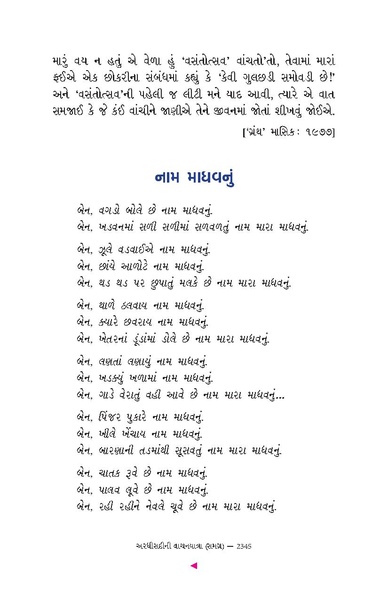 મારું વય ન હતું એ વેળા હું ‘વસંતોત્સવ’ વાંચતો’તો, તેવામાં મારાં
ફઈએ એક છોકરીના સંબંધમાં કહ્યું કે ‘કેવી ગુલછડી સમોવડી છે!’
અને ‘વસંતોત્સવ’ની પહેલી જ લીટી મને યાદ આવી, ત્યારે એ વાત
સમજાઈ કે જે કંઈ વાંચીને જાણીએ તેને જીવનમાં જોતાં શીખવું જોઈએ.
[‘ગ્રંથ’ માસિક: ૧૯૭૭]
નામ માધવનું
બેન, વગડો બોલે છે નામ માધવનું.
બેન, ખડવનમાં સળી સળીમાં સળવળતું નામ મારા માધવનું.
બેન, ઝૂલે વડવાઈએ નામ માધવનું.
બેન, છાંયે આળોટે નામ માધવનું.
બેન, થડ થડ પર છુપાતું મલકે છે નામ મારા માધવનું.
બેન, થાળે ઠલવાય નામ માધવનું.
બેન, ક્યારે છવરાય નામ માધવનું.
બેન, ખેતરનાં ડૂંડાંમાં ડોલે છે નામ મારા માધવનું.
બેન, લણતાં લણાયું નામ માધવનું.
બેન, ખડક્યું ખળામાં નામ માધવનું.
બેન, ગાડે વેરાતું વહી આવે છે નામ મારા માધવનું...
બેન, પિંજર પુકારે નામ માધવનું.
બેન, ખીલે ખેંચાય નામ માધવનું.
બેન, બારણાની તડમાંથી સૂસવતું નામ મારા માધવનું.
બેન, ચાતક રૂવે છે નામ માધવનું.
બેન, પાલવ લૂવે છે નામ માધવનું.
બેન, રહી રહીને નેવલે ચૂવે છે નામ મારા માધવનું.
અરધીસદીની વાચનયાત્રા (સમગ્ર) — 2345